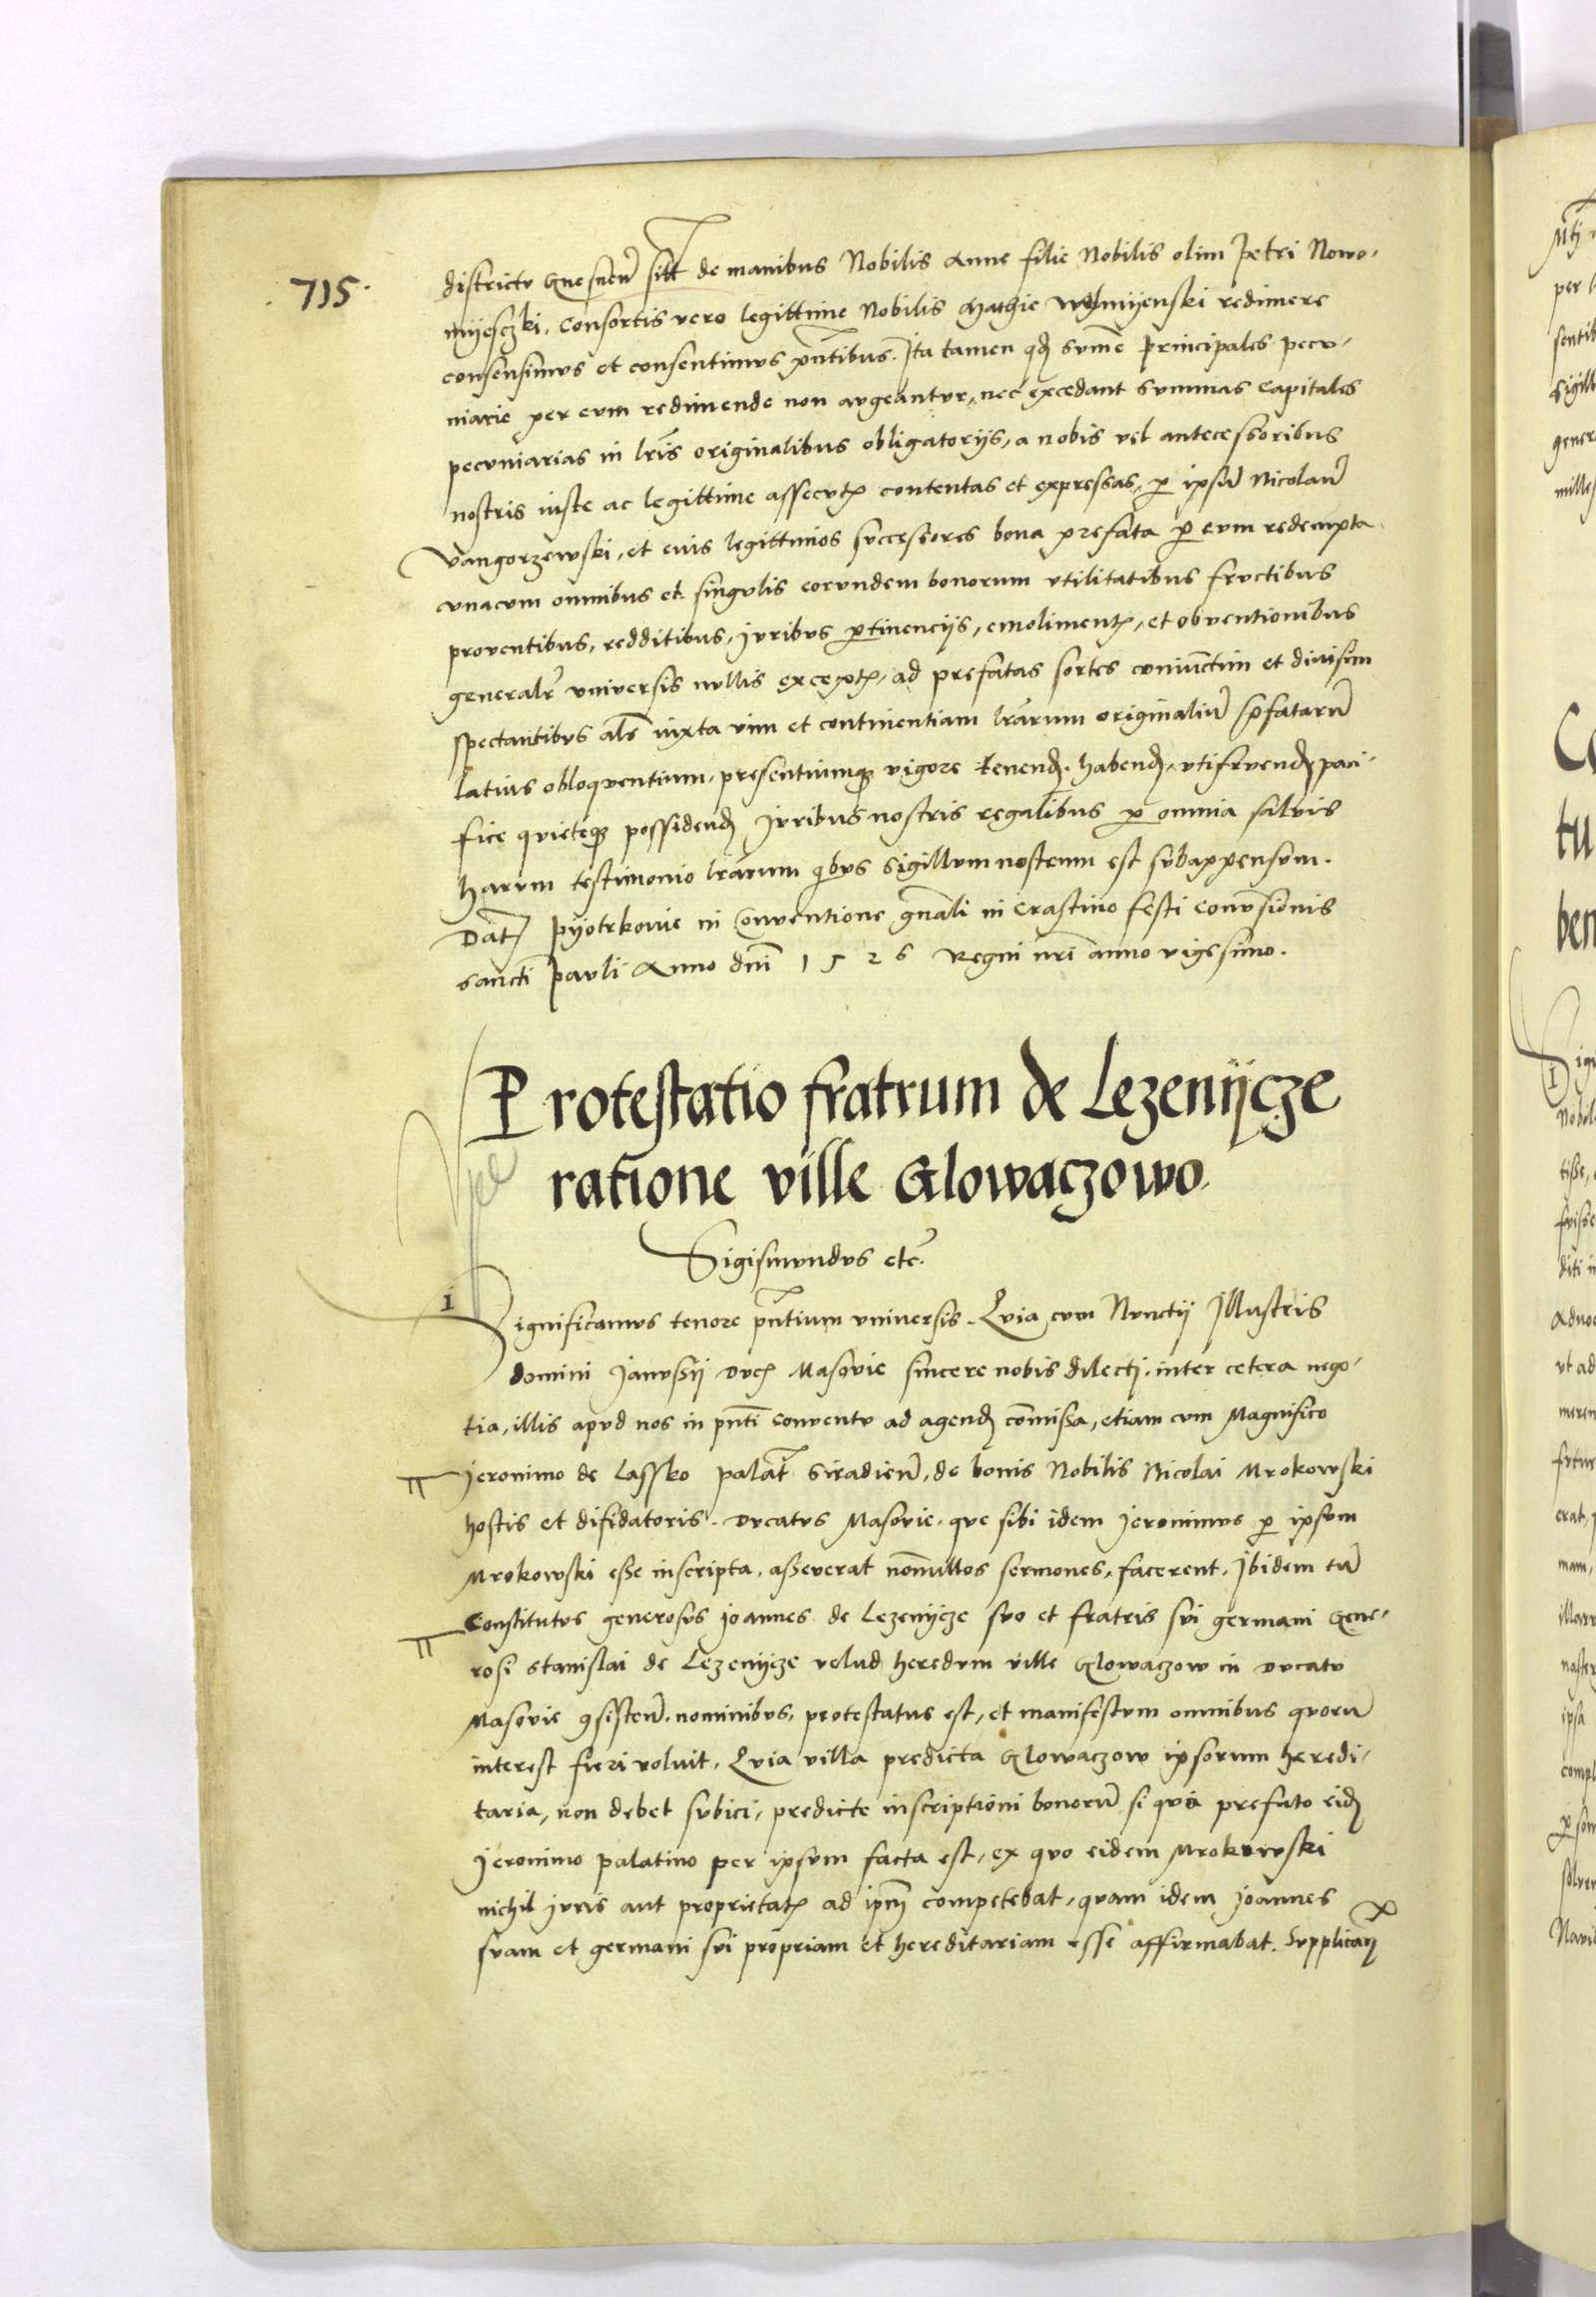 715.
districtu Gnesnen̄ sitt̄ de manibus Nobilis Anne filie Nobilis olim Petri Nowo-
myesczki. Consortis vero legittime Nobilis Mathie redimere
consensimus et consentimus pn̄tibus. Ita tamen qđ sum̄e principales pecu-
niarie per eum redimende non augeantur, nec excedant summas capitales
pecuniarias in lr̄is originalibus obligatorijs, a nobis vel antecessoribus
nostris iuste ac legittime assecutꝭ contentas et expressas, ꝑ ipsū Nicolaū
Vangorzewski, et eius legittimos successores bona prefata ꝑ eum redempta
vnacum omnibus et singulis eorundem bonorum vtilitatibus fructibus
proventibus, redditibus, Iuribus ꝑtinencijs, emolimentꝭ, et obventionibus
generalr̄ vniversis nullis exceptꝭ, ad prefatas sortes coniūctim et divisim
spectantibus als̄ iuxta vim et continentiam lrārum originaliū p̄fatarū
latius obloquentium, presentiumqꝫ vigore tenenđ. habenđ, vtifruenđ paci-
fice quieteqꝫ possidenđ Iuribus nostris regalibus ꝑ omnia salvis
harum testimonio lrārum qͥbus sigillum nostrum est subappensum.
Dat̄ Pyotrkovie in Conventione gn̄ali in crastino festi conv̄sionis
sancti Pauli Anno dn̄i 1526 Regni nr̄i anno vigesimo.
Protestatio fratrum de Lezenijcze
ratione ville Glowaczowo.
Sigismundus etc̄.
Significamus tenore pn̄tium vniversis. Quia cum Nunctij Illustris
domini Janussij Ducꝭ Masovie sincere nobis dilecti, inter cetera nego-
tia, illis apud nos in pn̄ti conventu ad agenđ com̄issa, etiam cum Magnifico
Jeronimo de Lassko palat̄ Siradien̄, de bonis Nobilis Nicolai Mrokowski
hostis et difidatoris. Ducatus Masovie. que sibi idem Jeronimus ꝑ ipsum
Mrokowski esse inscripta, asseverat non̄ullos sermones, facerent. Ibidem tū
Constitutus generosus Joannes de Lezenijcze suo et fratris sui germani Gene-
rosi Stanislai de Lezenijcze velud heredum ville Glowaczow in Ducatu
Masovie ꝯsisten̄. nominibus, protestatus est, et manifestum omnibus quorū
interest fieri voluit. Quia villa predicta Glowaczow ipsorum heredi-
taria, non debet subici, predicte inscriptioni bonorū si qua prefato eiđ
Jeronimo palatino per ipsum facta est, ex quo eidem Mrokowski
nichil Juris aut proprietatꝭ ad ip̄m competebat, quam idem Joannes
suam et germani sui propriam et hereditariam esse affirmabat. Supplicavi